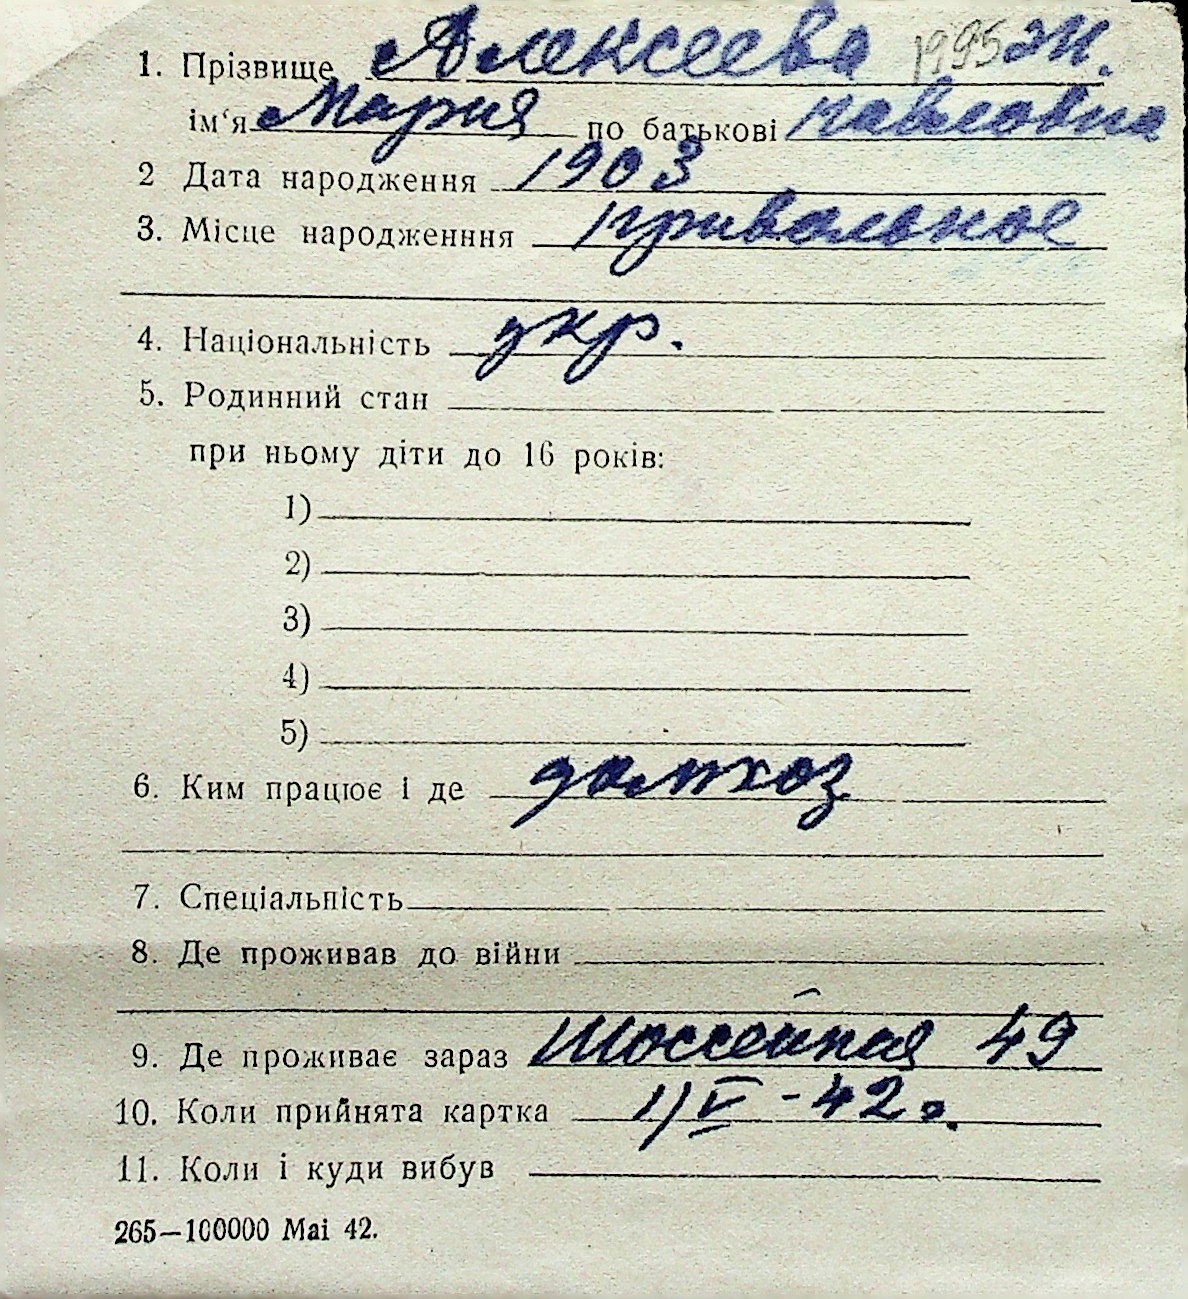 1. Прізвище Алексеева 1995 Ж.
ім'я Мария по батькові Павловна
2 Дата народження 1903
3. Місце народженння Привольное
4. Національність укр.
5. Родинний стан
при ньому діти до 16 років:
1)
2)
3)
4)
5)
6. Ким працює і де домхоз
7. Спеціальність
8. Де проживав до війни
9. Де проживає зараз Шоссейная 49
10. Коли прийнята картка 1/V - 42 г.
11. Коли і куди вибув
265—100000 Маі 42.